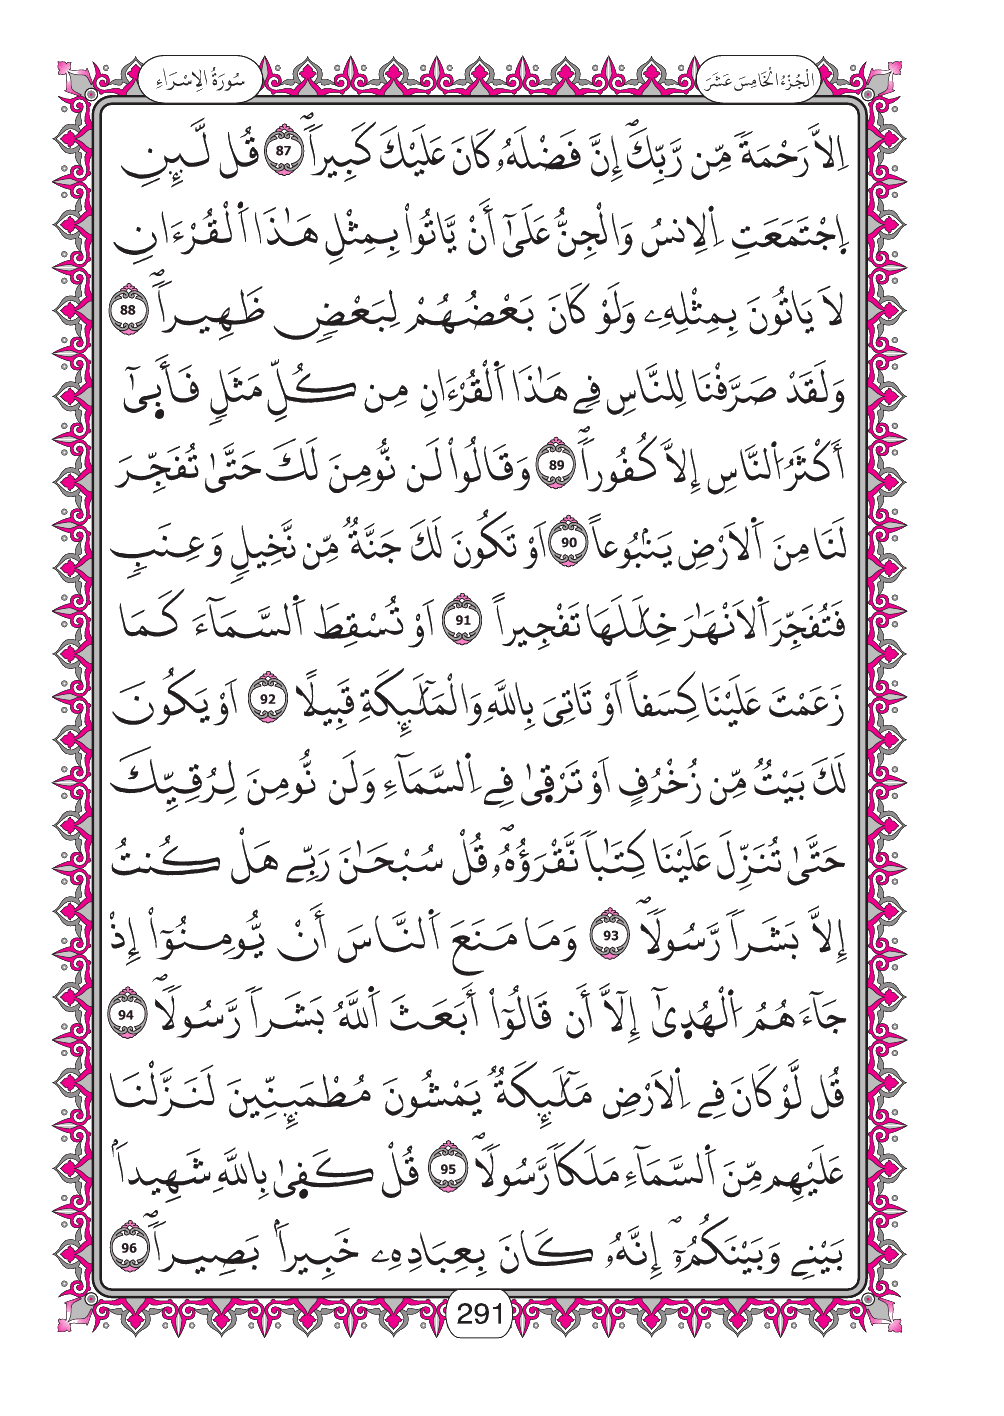 سُورَةُ الِاسْرَاءِ
الْجُزْءُ الْخَامِسَ عَشَرَ
اِلاَّ رَحْمَةٗ مِّن رَّبِّكَۖ إِنَّ فَضْلَهُۥ كَانَ عَلَيْكَ كَبِيراٗۖ 87 قُل لَّئِنِ
اِ۪جْتَمَعَتِ اِ۬لِانسُ وَالْجِنُّ عَلَىٰٓ أَنْ يَّاتُواْ بِمِثْلِ هَٰذَا اَ۬لْقُرْءَانِ
لَا يَاتُونَ بِمِثْلِهِۦ وَلَوْ كَانَ بَعْضُهُمْ لِبَعْضٖ ظَهِيراٗۖ 88
وَلَقَدْ صَرَّفْنَا لِلنَّاسِ فِے هَٰذَا اَ۬لْقُرْءَانِ مِن كُلِّ مَثَلٖ فَأَبَىٰٓ
أَكْثَرُ اُ۬لنَّاسِ إِلاَّ كُفُوراٗۖ 89 وَقَالُواْ لَن نُّومِنَ لَكَ حَتَّىٰ تُفَجِّرَ
لَنَا مِنَ اَ۬لَارْضِ يَنۢبُوعاً 90 اَوْ تَكُونَ لَكَ جَنَّةٞ مِّن نَّخِيلٖ وَعِنَبٖ
فَتُفَجِّرَ اَ۬لَانْهَٰرَ خِلَٰلَهَا تَفْجِيراً 91 اَوْ تُسْقِطَ اَ۬لسَّمَآءَ كَمَا
زَعَمْتَ عَلَيْنَا كِسَفاً اَوْ تَاتِيَ بِاللَّهِ وَالْمَلَٰٓئِكَةِ قَبِيلًا 92 اَوْ يَكُونَ
لَكَ بَيْتٞ مِّن زُخْرُفٍ اَوْ تَرْقَىٰ فِے اِ۬لسَّمَآءِ وَلَن نُّومِنَ لِرُقِيِّكَ
حَتَّىٰ تُنَزِّلَ عَلَيْنَا كِتَٰباٗ نَّقْرَؤُهُۥۖ قُلْ سُبْحَانَ رَبِّے هَلْ كُنتُ
إِلاَّ بَشَراٗ رَّسُولاٗۖ 93 وَمَا مَنَعَ اَ۬لنَّاسَ أَنْ يُّومِنُوٓاْ إِذْ
جَآءَهُمُ اُ۬لْهُدَىٰٓ إِلَّآ أَن قَالُوٓاْ أَبَعَثَ اَ۬للَّهُ بَشَراٗ رَّسُولاٗۖ 94
قُل لَّوْ كَانَ فِے اِ۬لَارْضِ مَلَٰٓئِكَةٞ يَمْشُونَ مُطْمَئِنِّينَ لَنَزَّلْنَا
عَلَيْهِم مِّنَ اَ۬لسَّمَآءِ مَلَكاٗ رَّسُولاٗۖ 95 قُلْ كَفَىٰ بِاللَّهِ شَهِيداَۢ
بَيْنِے وَبَيْنَكُمُۥٓۖ إِنَّهُۥ كَانَ بِعِبَادِهِۦ خَبِيراَۢ بَصِيراٗۖ 96
291